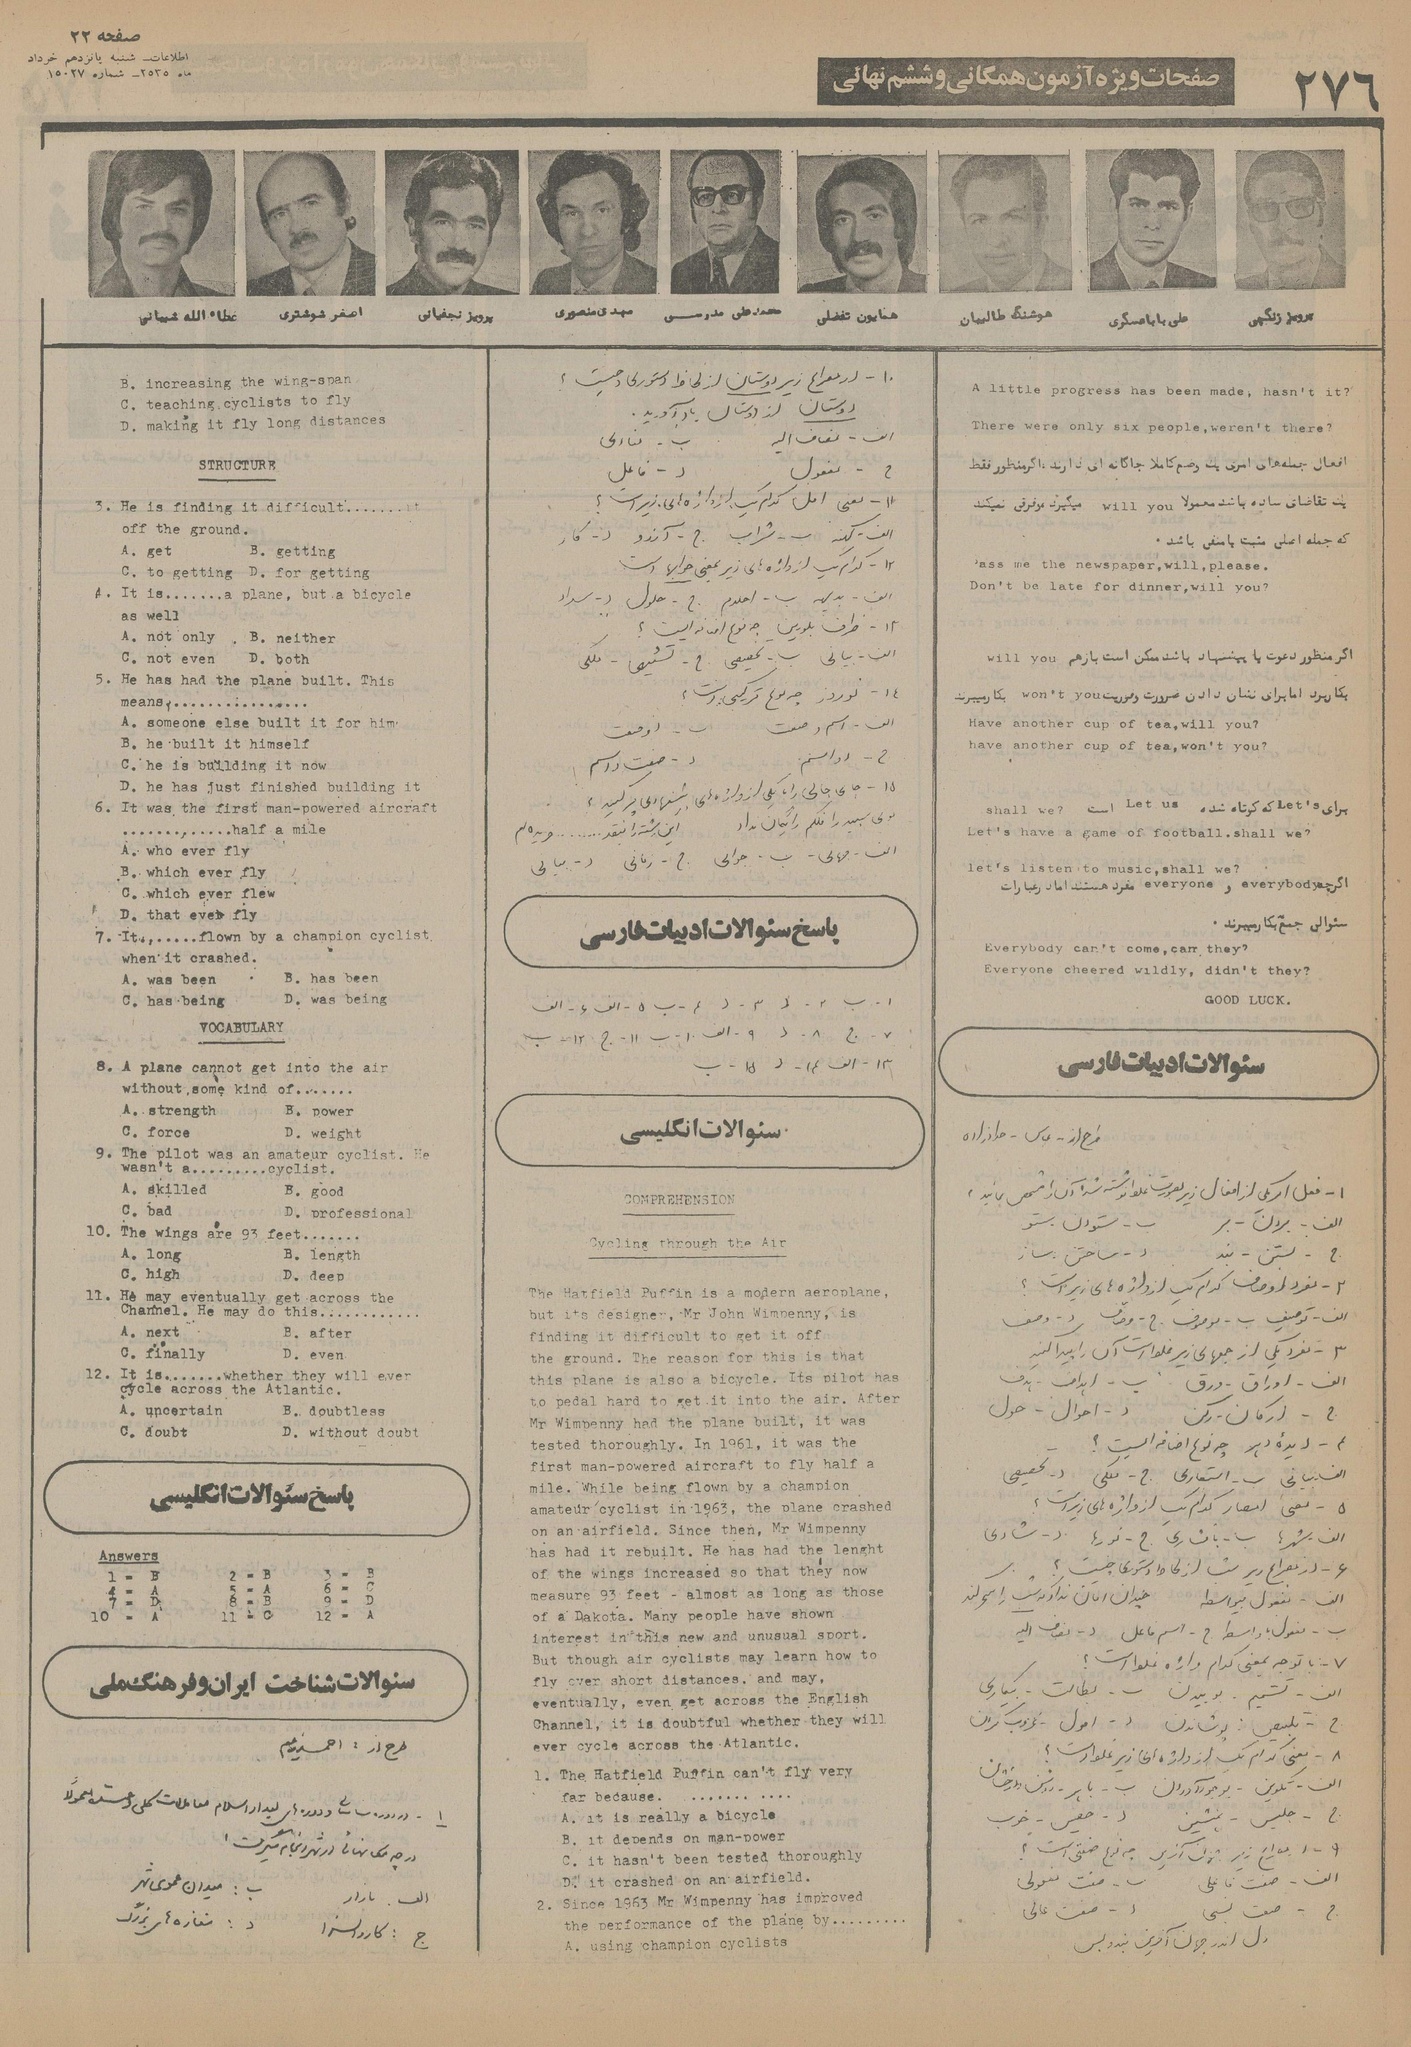 صفحه ۲۲
اطلاعات - شنبه پانزدهم خرداد
ماه ۲۵۳۵ - شماره ۱۵۰۲۷
صفحات ویژه آزمون همگانی و ششم نهائی
۲۷۶
پرویز زنگهی
علی باباعسگری
هوشنگ طالبیان
همایون تفضلی
محمدعلی مدرسی
مهدی منصوری
پرویز نجفیانی
اصغر شوشتری
عطاء الله شیبانی
A little progress has been made, hasn't it?
There were only six people,weren't there?
افعال جمله‌های امری یک وضع کاملا جداگانه ای دارند اگر منظور فقط
یک تقاضای ساده باشد معمولا will you میگیرد و فرقی نمیکند
که جمله اصلی مثبت یا منفی باشد .
Pass me the newspaper,will,please.
Don't be late for dinner,will you?
اگر منظور دعوت یا پیشنهاد باشد ممکن است بازهم will you
بکار برد اما برای نشان دادن ضرورت و فوریت won't you بکار میبرند
Have another cup of tea,will you?
have another cup of tea,won't you?
برای Let's که کوتاه شده Let us است shall we?
Let's have a game of football.shall we?
let's listen to music,shall we?
اگرچه everybody و everyone مفرد هستند اما در عبارات
سئوالی جمع بکار میبرند .
Everybody can't come,can they?
Everyone cheered wildly, didn't they?
GOOD LUCK.
سئوالات ادبیات فارسی
۱- فعل امر یکی از افعال زیر بصورت غلط نوشته شده آن را مشخص نمائید ؟
الف - بردن - بر ب - ستودن بستو
ج - بستن - بند د - ساختن بساز
۲- مفرد اوصاف کدام یک از واژه های زیر است ؟
الف - توصیف ب - موصوف ج - وصاف د - وصف
۳- مفرد یکی از جمعهای زیر غلط است آن را پیدا کنید
الف - اوراق - ورق ب - اهداف - هدف
ج - ارکان - رکن د - احوال - حول
۴- دیده دهر چه نوع اضافه ایست ؟
الف بیانی ب - استعاری ج - ملکی د - تخصیصی
۵- معنی امصار کدام یک از واژه های زیر است ؟
الف - شهرها
الف - مفعول بیواسطه
ب - مفعول باواسطه ج - اسم فاعل د - مضاف الیه
۷- با توجه بمعنی کدام واژه غلط است ؟
۸- معنی کدام یک از واژه های زیر غلط است ؟
الف - صفت فاعلی ب - صفت مفعولی
ج - صفت نسبی د - صفت عالی
۱۰- در مصراع زیر دوستان از لحاظ دستوری چیست ؟
دوستان از دوستان یاد آورید .
الف - مضاف الیه ب - منادی
ج - مفعول د - فاعل
۱۱- معنی امل کدام یک از واژه های زیر است ؟
الف - کهنه ب - شراب ج - آرزو د - کار
۱۲- کدام یک از واژه های زیر بمعنی خوابها است
۱۳- ظرف بلورین چه نوع اضافه ایست ؟
الف - بیانی ب - تخصیصی ج - تشبیهی - ملکی
۱۴- نوروز چه نوع ترکیبی است ؟
۱۵- جای خالی را با یکی از واژه های پیشنهادی پر کنید ؟
موی سپید را فلکم رایگان نداد این رشته را بنقد ........ خریده ام
الف - مهانی - ب - جوانی ج - زمانی د - بیانی
پاسخ سئوالات ادبیات فارسی
۱- ب ۲- د ۳- د ۴- ب ۵- الف ۶- الف
۷- ج ۸- د ۹- الف ۱۰- ب ۱۱- ج ۱۲- ب
۱۳- الف ۱۴- د ۱۵- ب
سئوالات انگلیسی
COMPREHENSION
Cycling through the Air
The Hatfield Puffin is a modern aeroplane,
but its designer, Mr John Wimpenny, is
finding it difficult to get it off
the ground. The reason for this is that
this plane is also a bicycle. Its pilot has
to pedal hard to get it into the air. After
Mr Wimpenny had the plane built, it was
tested thoroughly. In 1961, it was the
first man-powered aircraft to fly half a
mile. While being flown by a champion
amateur cyclist in 1963, the plane crashed
on an airfield. Since then, Mr Wimpenny
has had it rebuilt. He has had the lenght
of the wings increased so that they now
measure 93 feet - almost as long as those
of a Dakota. Many people have shown
interest in this new and unusual sport.
But though air cyclists may learn how to
fly over short distances, and may,
eventually, even get across the English
Channel, it is doubtful whether they will
ever cycle across the Atlantic.
1. The Hatfield Puffin can't fly very
far because. ........ ....
A. it is really a bicycle
B. it depends on man-power
C. it hasn't been tested thoroughly
D. it crashed on an airfield.
2. Since 1963 Mr Wimpenny has improved
the performance of the plane by.........
A. using champion cyclists
B. increasing the wing-span
C. teaching cyclists to fly
D. making it fly long distances
STRUCTURE
3. He is finding it difficult.......it
off the ground.
A. get B. getting
C. to getting D. for getting
4. It is.......a plane, but a bicycle
as well
A. not only B. neither
C. not even D. both
5. He has had the plane built. This
means,................
A. someone else built it for him.
B. he built it himself
C. he is building it now
D. he has just finished building it
6. It was the first man-powered aircraft
.............half a mile
A. who ever fly
B. which ever fly
C. which ever flew
D. that ever fly
7. It,,.....flown by a champion cyclist
when it crashed.
A. was been B. has been
C. has being D. was being
VOCABULARY
8. A plane cannot get into the air
without some kind of.......
A. strength B. power
C. force D. weight
9. The pilot was an amateur cyclist. He
wasn't a.........cyclist.
A. skilled B. good
C. bad D. professional
10. The wings are 93 feet.......
A. long B. length
C. high D. deep
11. He may eventually get across the
Channel. He may do this............
A. next B. after
C. finally D. even
12. It is.......whether they will ever
cycle across the Atlantic.
A. uncertain B. doubtless
C. doubt D. without doubt
پاسخ سئوالات انگلیسی
Answers
1 - B 2 - B 3 - B
4 - A 5 - A 6 - C
7 - D 8 - B 9 - D
10 - A 11 - C 12 - A
سئوالات شناخت ایران و فرهنگ ملی
طرح از :
در چه مکانهائی در شهر انجام میگرفت ؟
الف : بازار ب : میدان عمومی شهر
ج : کاروانسرا د : مغازه های بزرگ